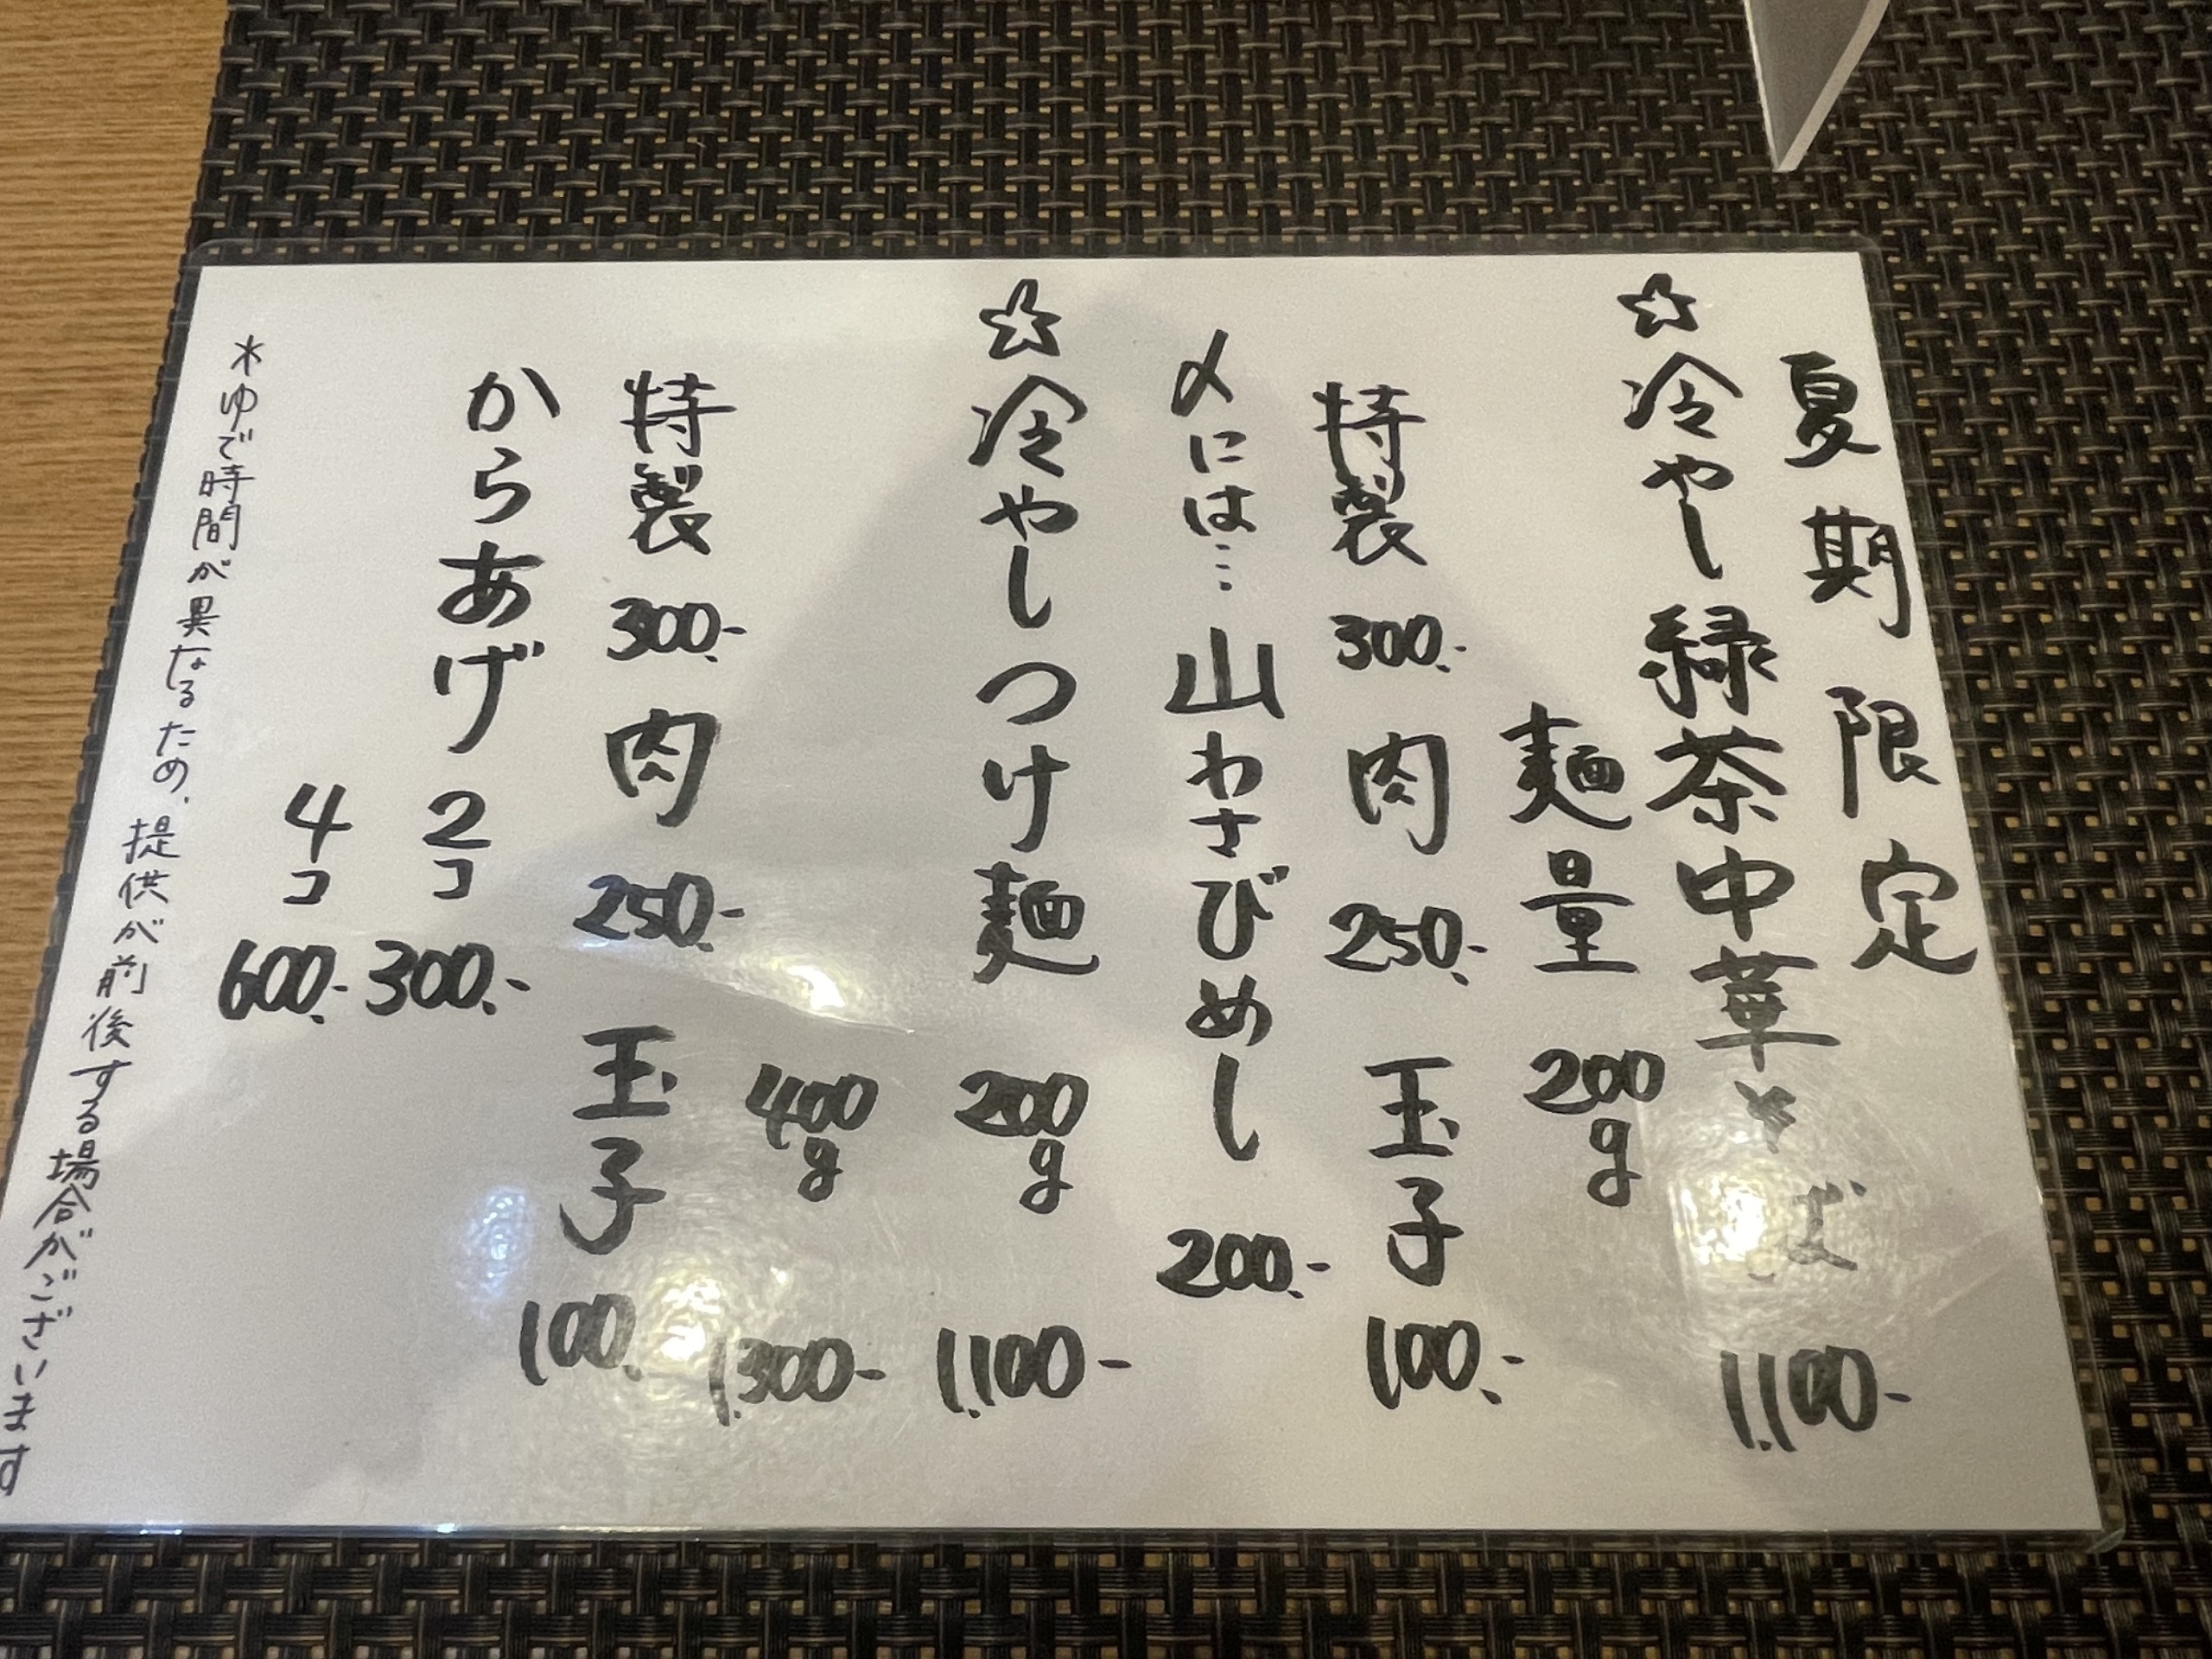 夏期限定
☆冷やし緑茶中華そば 1,100-
麺量 200g
特製 300.- 肉 250.- 玉子 100.-
〆には… 山わさびめし 200.-
☆冷やしつけ麺 200g 1,100-
400g 1,300-
特製 300.- 肉 250.- 玉子 100.
からあげ 2コ 300.-
4コ 600.-
*ゆで時間が異なるため、提供が前後する場合がございます